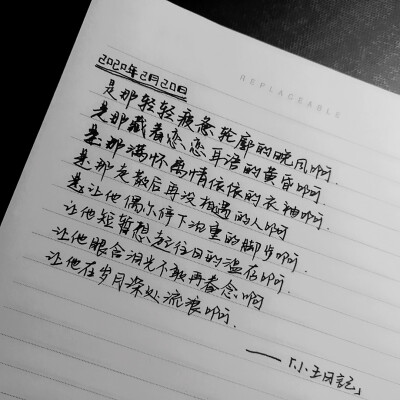 REPLACEABLE
2020年2月20日
是那轻轻疲惫轮廓的晚风啊.
是那藏着恋恋耳语的黄昏啊.
是那满怀离情依依的衣袖啊.
是那走散后再没相遇的人啊
是让他偶尔停下沉重的脚步啊.
让他短暂想起往日的温存啊.
让他眼含泪光不敢再眷念啊
让他在岁月深处流浪啊.
——「小王日記」